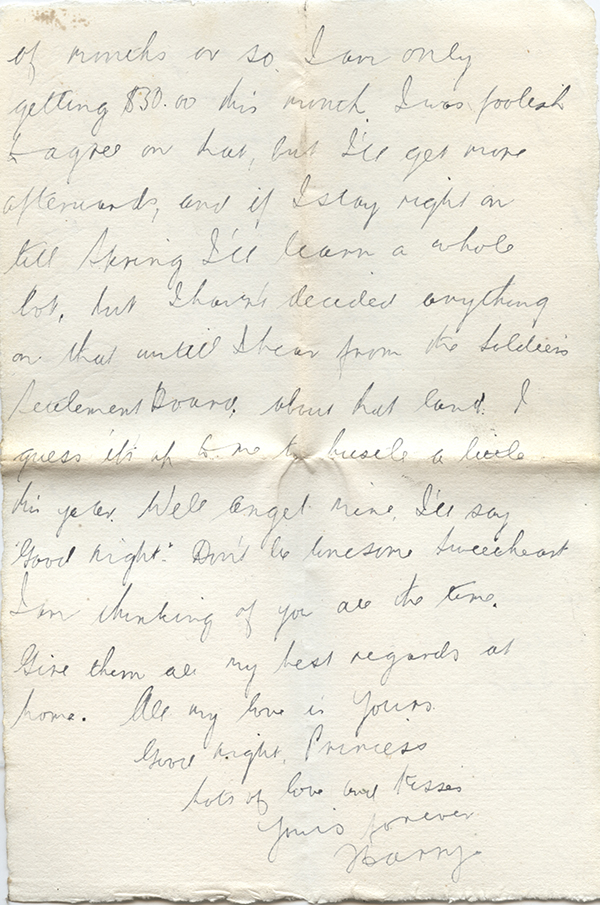 of months or so. I am only
getting $30.00 this month. I was foolish
to agree on that, but I'll get more
afterwards, and if I stay right on
till Spring I'll learn a whole
lot, but I haven't decided anything
on that untill I hear from the Soldiers
Settlement Board, about that land. I
guess it's up to me to hustle a little
this year. Well angel mine, I'll say
"Good Night". Don't be lonesome Sweetheart
I am thinking of you all the time.
Give them all my best regards at
home. All my love is Yours
Good Night, Princess
Lots of love and Kisses
Yours forever
Harry